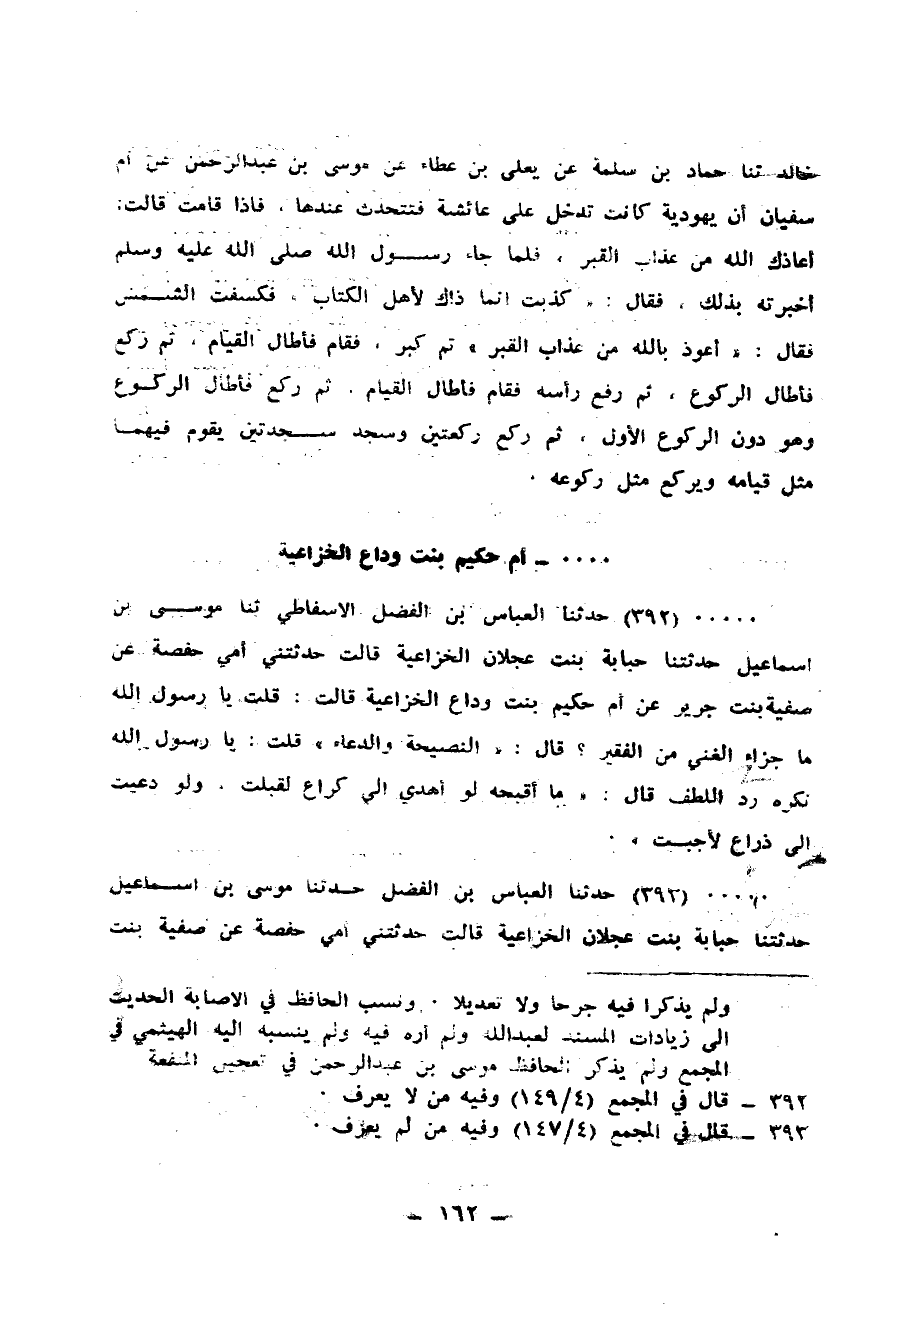 خالد ثنا حماد بن سلمة عن يعلى بن عطاء عن موسى بن عبدالرحمن عن أم
سفيان أن يهودية كانت تدخل على عائشة فتتحدث عندها ، فاذا قامت قالت:
أعاذك الله من عذاب القبر ، فلما جاء رســـول الله صلى الله عليه وسلم
أخبرته بذلك ، فقال : « كذبت انما ذاك لأهل الكتاب » فكسفت الشــمس
فقال : « أعوذ بالله من عذاب القبر » ثم كبر ، فقام فأطال القيام ، ثم ركع
فأطال الركوع ، ثم رفع رأسه فقام فأطال القيام . ثم ركع فأطال الركــوع
وهو دون الركوع الأول ، ثم ركع ركعتين وسجد ســـجدتين يقوم فيهمــا
مثل قيامه ويركع مثل ركوعه .
٠٠٠٠ ـ أم حكيم بنت وداع الخزاعية
٠٠٠٠٠ (٣٩٢) حدثنا العباس بن الفضل الاسفاطي ثنا موســـى بن
اسماعيل حدثتنا حبابة بنت عجلان الخزاعية قالت حدثتني أمي حفصة عن
صفية بنت جرير عن أم حكيم بنت وداع الخزاعية قالت : قلت يا رسول الله
ما جزاء الغني من الفقير ؟ قال : « النصيحة والدعاء » قلت : يا رسول الله
نكره رد اللطف قال : « ما أقبحه لو أهدي الي كراع لقبلت . ولو دعيت
الى ذراع لأجبــت » .
٠٠٠٠٠ (٣٩٣) حدثنا العباس بن الفضل حــدثنا موسى بن اســماعيل
حدثتنا حبابة بنت عجلان الخزاعية قالت حدثتني أمي حفصة عن صفية بنت
ولم يذكرا فيه جرحا ولا تعديلا . ونسب الحافظ في الاصابة الحديث
الى زيادات المسند لعبدالله ولم أره فيه ولم ينسبه اليه الهيثمي في
المجمع ولم يذكر الحافظ موسى بن عبدالرحمن في تعجيل المنفعة
٣٩٢ ـ قال في المجمع (١٤٩/٤) وفيه من لا يعرف .
٣٩٣ ـ قال في المجمع (١٤٧/٤) وفيه من لم يعرف .
ـ ١٦٢ ـ